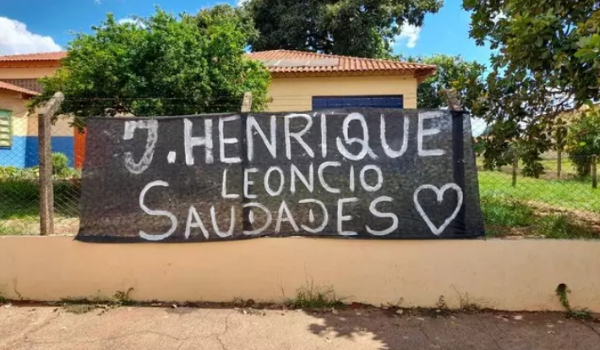 J. HENRIQUE
LEONCIO
SAUDADES ♡